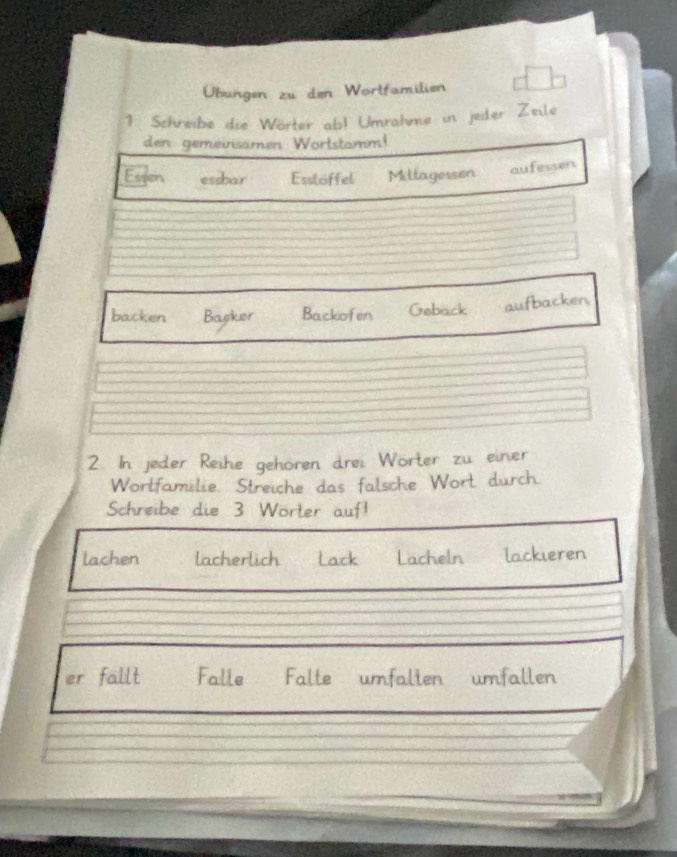 Übungen zu den Wortfamilien
1. Schreibe die Wörter ab! Umrahme in jeder Zeile
den gemeinsamen Wortstamm!
Essen essbar Esslöffel Mittagessen aufessen
backen Bäcker Backofen Gebäck aufbacken
2. In jeder Reihe gehören drei Wörter zu einer
Wortfamilie. Streiche das falsche Wort durch.
Schreibe die 3 Wörter auf!
lachen lächerlich Lack Lächeln lackieren
er fällt Falle Falte umfalten umfallen